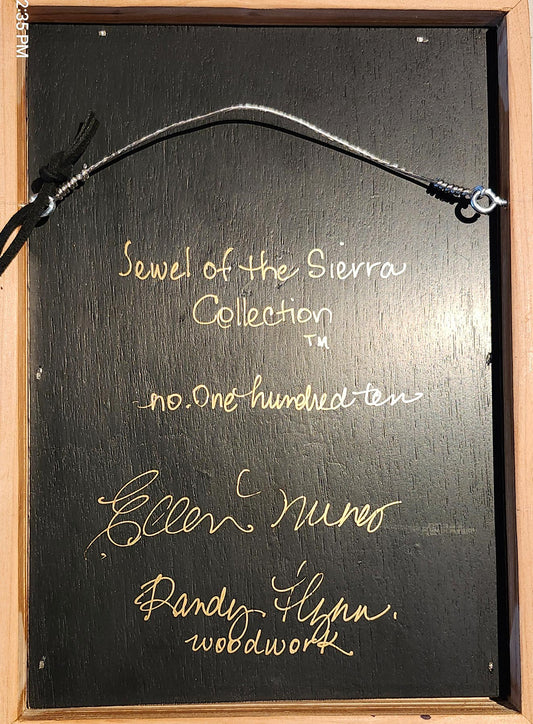 2:35 PM
Jewel of the Sierra
Collection
TM
no. One hundred ten
Ellen C Nunes
Randy Flynn.
woodwork